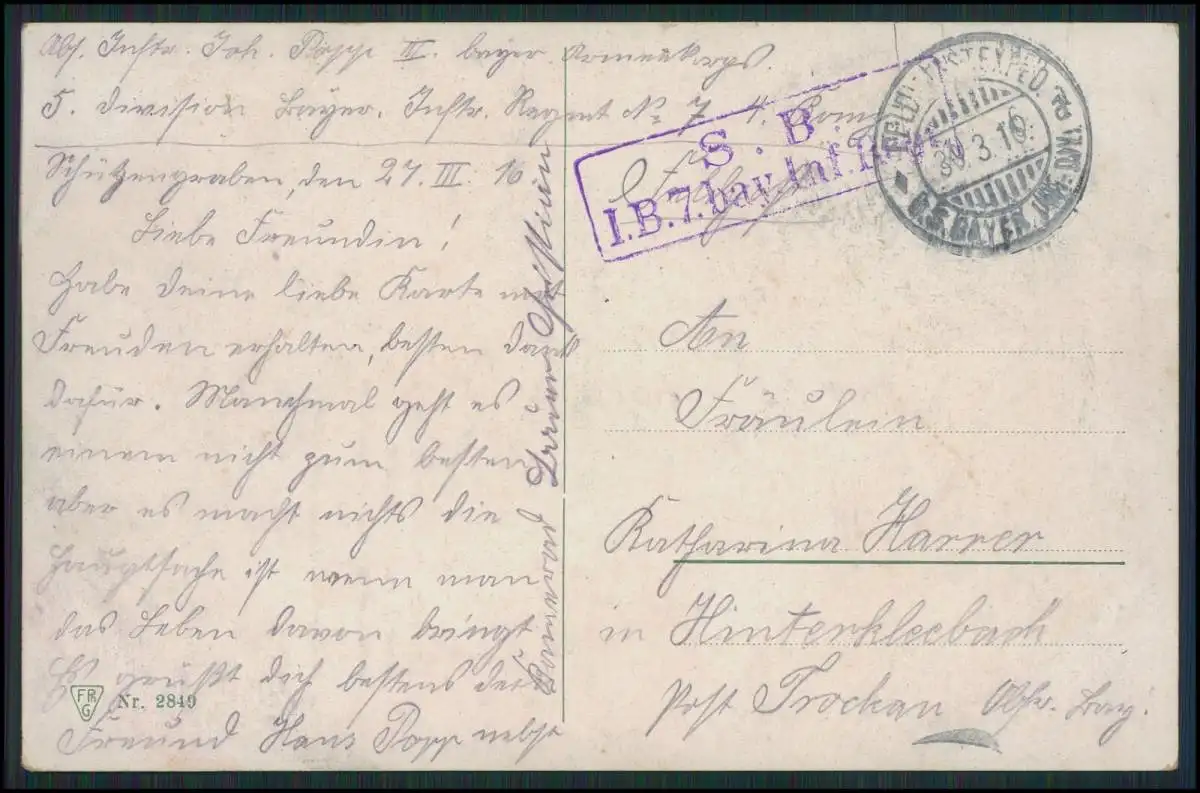 Abs. Inftr. Joh. Popp III. bayer. Armeekorps.
5. Division Bayer. Inftr. Regmt No 7 4. Komp.
Schützengraben, den 27. III. 16
Liebe Freundin!
Habe deine liebe Karte mit
Freuden erhalten, besten dank
dafür. Manchmal geht es
einem nicht zum besten
aber es macht nichts die
Hauptsache ist wenn man
das Leben davon bringt
Es grüßt dich bestens dein
Freund Hans Popp nebst
Kamerad
S. B.
I.B.7.bay.Inf.
30.3.16.
D.5.BAYER. INF.
An
Fräulein
Katharina Harrer
in Hinterkleebach
Post Trockau Obfr. Bay.
FRG
Nr. 2849